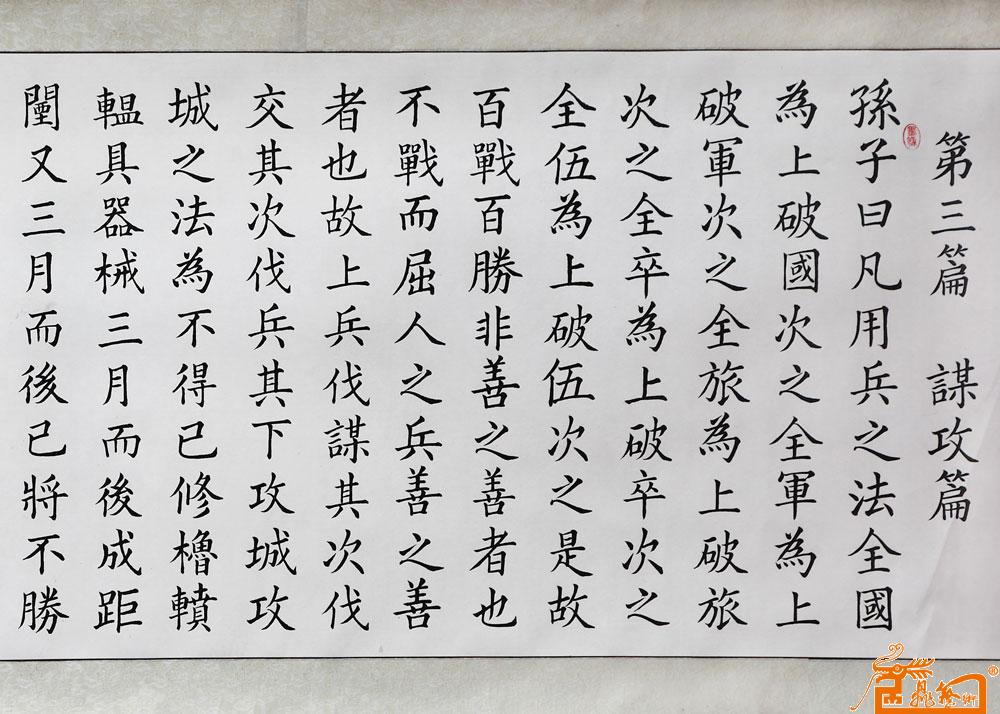 第三篇 謀攻篇
孫子曰凡用兵之法全國
為上破國次之全軍為上
破軍次之全旅為上破旅
次之全卒為上破卒次之
全伍為上破伍次之是故
百戰百勝非善之善者也
不戰而屈人之兵善之善
者也故上兵伐謀其次伐
交其次伐兵其下攻城攻
城之法為不得已修櫓轒
轀具器械三月而後成距
闉又三月而後已將不勝